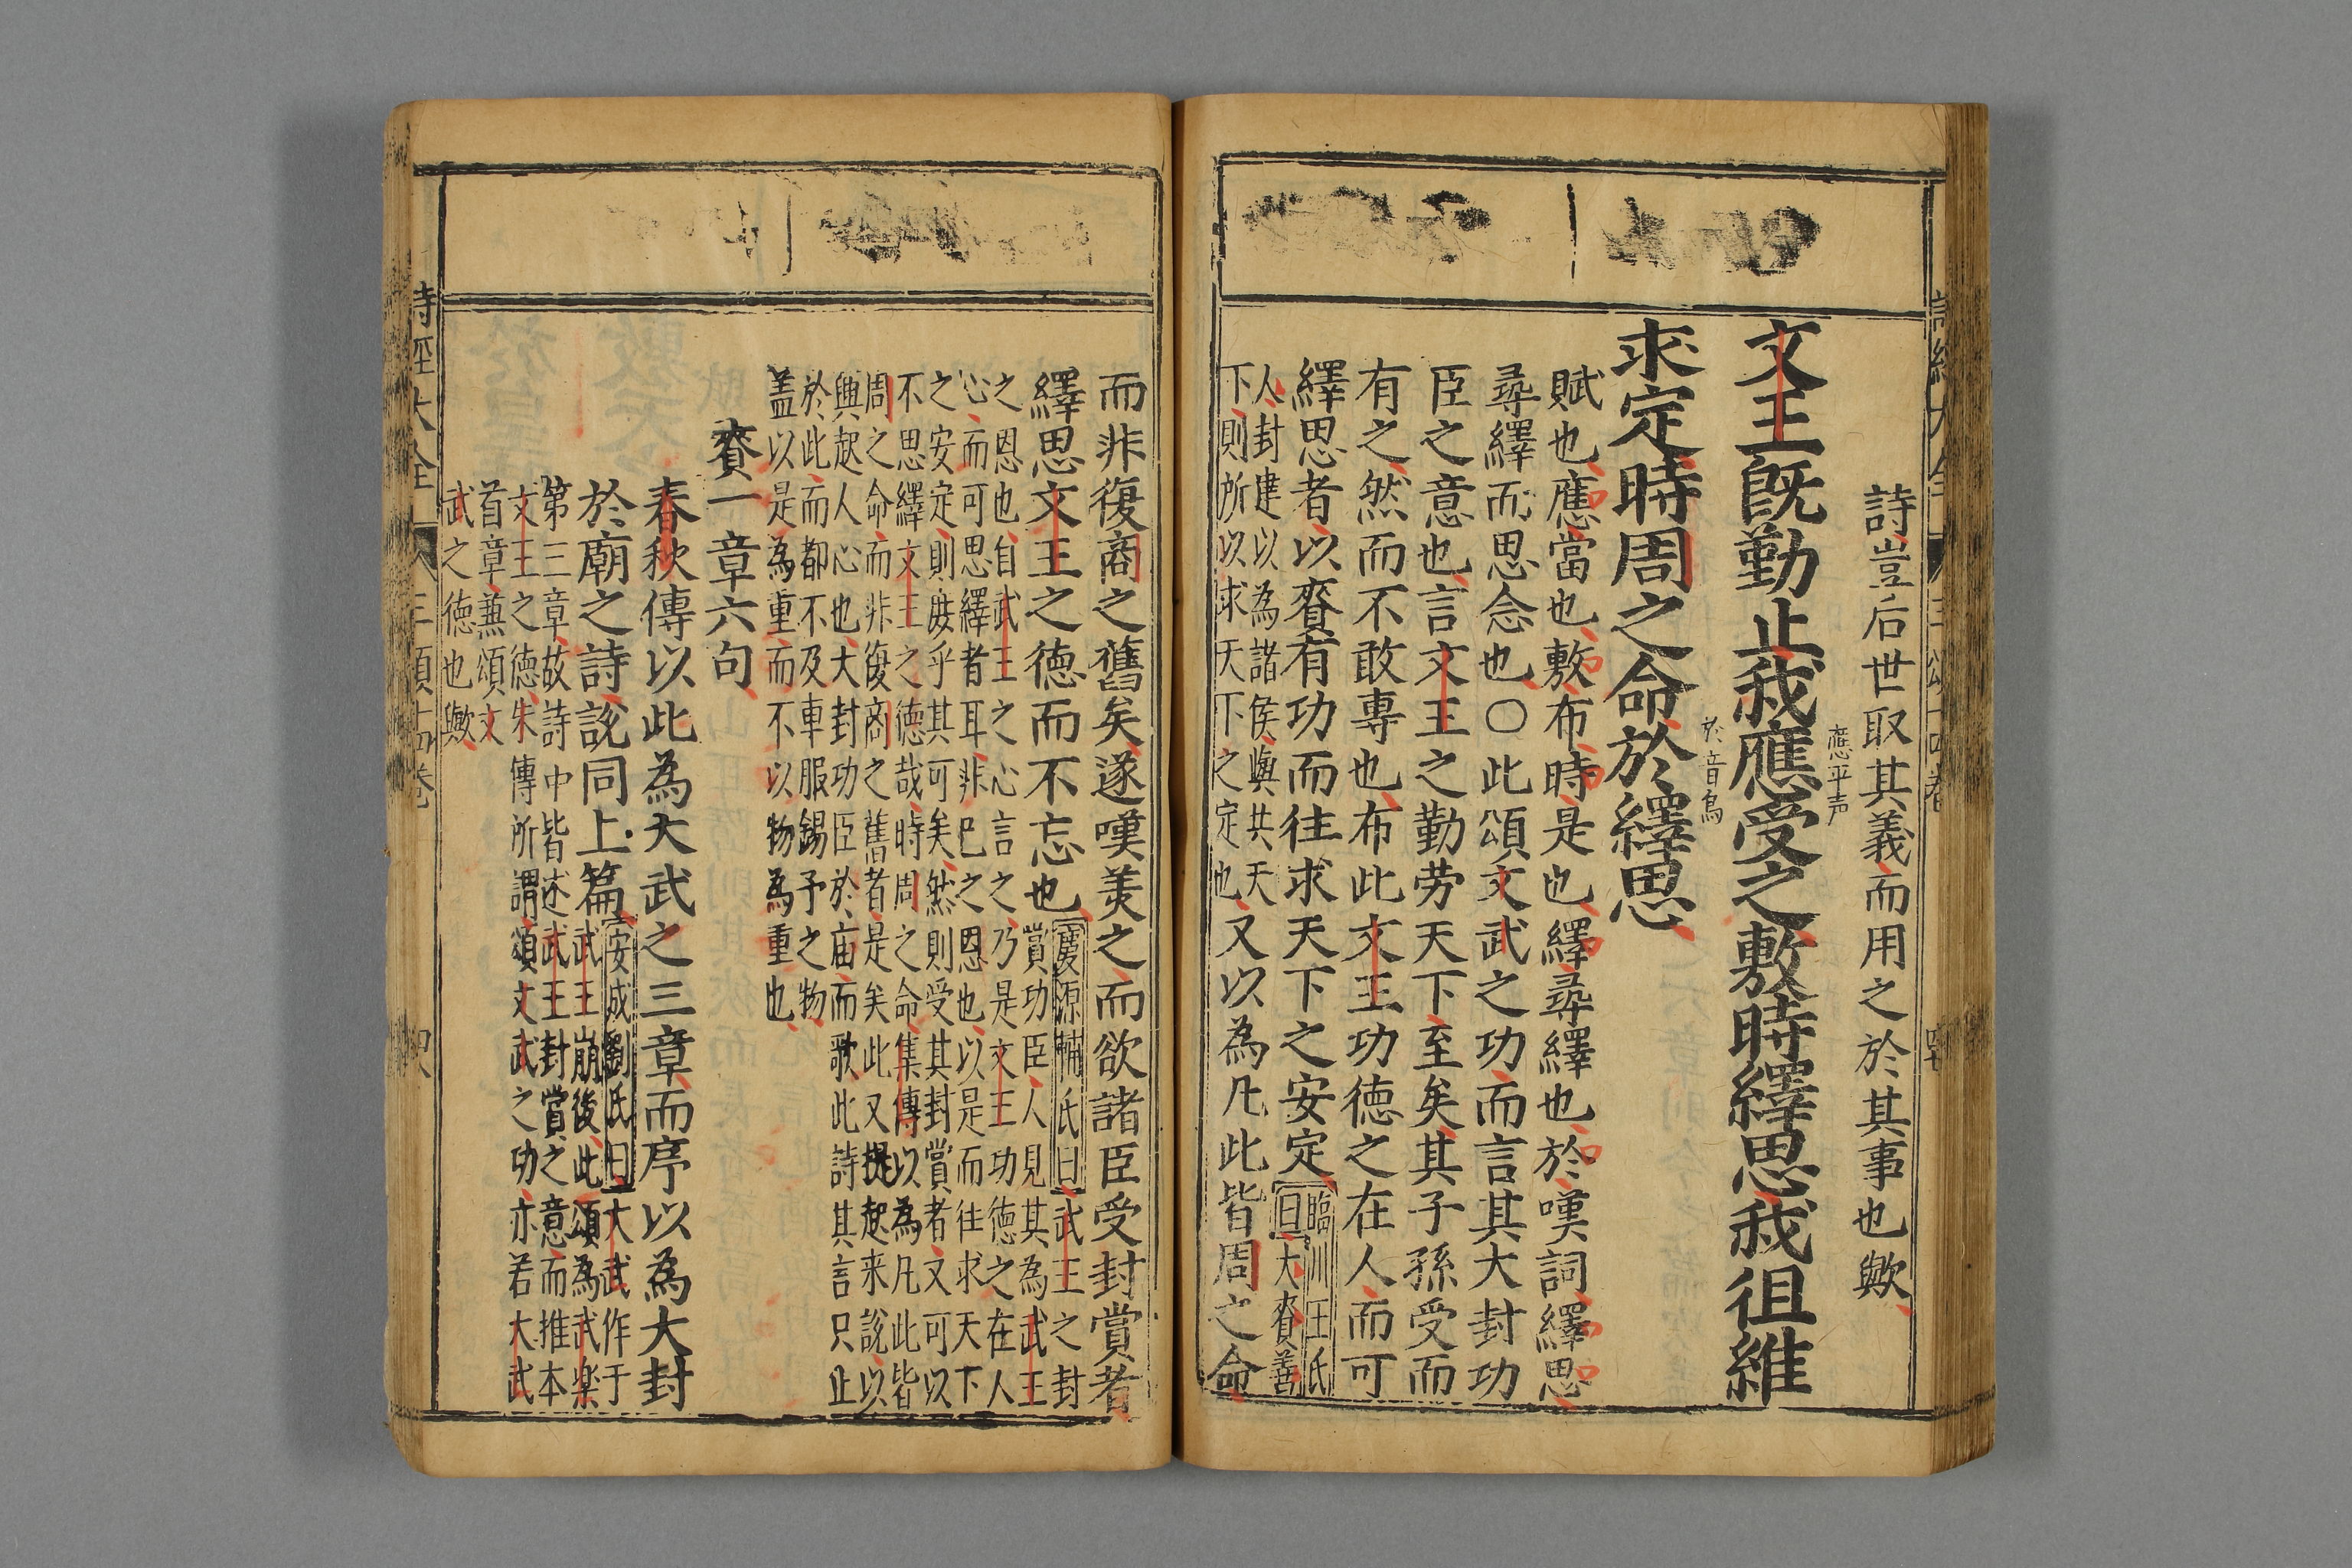 詩豈后世取其義而用之於其事也歟
文王旣勤止我應受之敷時繹思我徂維
應平声
求定時周之命於繹思
於音烏
賦也應當也敷布時是也繹尋繹也於嘆詞繹思
尋繹而思念也〇此頌文武之功而言其大封功
臣之意也言文王之勤劳天下至矣其子孫受而
有之然而不敢專也布此文王功德之在人而可
繹思者以賚有功而往求天下之安定
臨川王氏
曰大賚善
人封建以為諸侯與共天
下則所以求天下之定也
又以為凡此皆周之命
而非復商之舊矣遂嘆美之而欲諸臣受封賞者
繹思文王之德而不忘也
慶源輔氏曰武王之封
賞功臣人見其為武王
之恩也自武王之心言之乃是文王功徳之在人
心而可思繹者耳非已之恩也以是而往求天下
之安定則庶乎其可矣然則受其封賞者又可以
不思繹文王之德哉時周之命集傳以為凡此皆
周之命而非復商之舊者是矣此又提起来說以
興起人心也大封功臣於庙而歌此詩其言只止
於此而都不及車服錫予之物
盖以是為重而不以物為重也
賚一章六句
春秋傳以此為大武之三章而序以為大封
於廟之詩說同上篇
安成劉氏曰大武作于
武王崩後此頌為武楽
第三章故詩中皆述武王封賞之意而推本
文王之德朱傳所謂頌文武之功亦若大武
首章兼頌文
武之德也歟